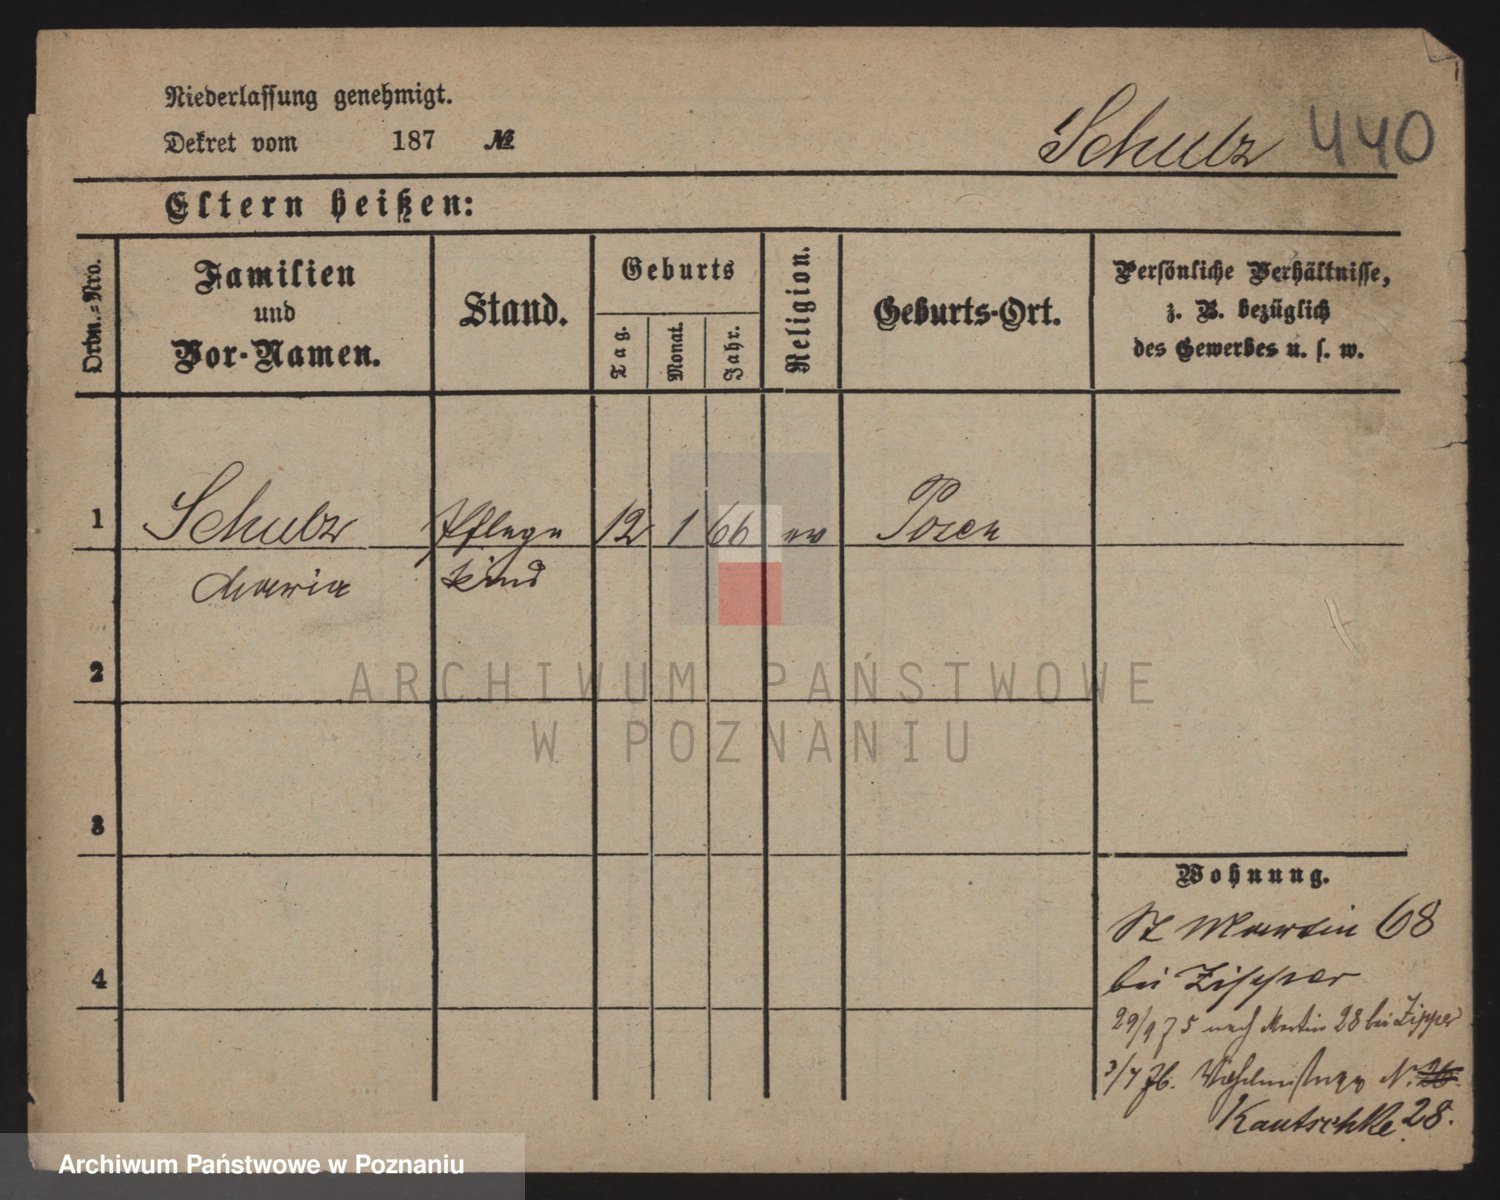 Niederlassung genehmigt.
Dekret vom 187 №
Schulz 440
Eltern heißen:
Ordn.-Nro.
Familien
und
Vor-Namen.
Stand.
Geburts
Tag.
Monat.
Jahr.
Religion.
Geburts-Ort.
Persönliche Verhältnisse,
z. B. bezüglich
des Gewerbes u. s. w.
1 Schulz Pflege 12 1 66 ev Posen
Maria kind
2
ARCHIWUM PAŃSTWOWE
W POZNANIU
3
4
Wohnung.
St Martin 68
bei Zipper
29/9 75 nach Martin 28 bei Zipper
3/4 76. Wilhelmstraße N. 26
Kautschke 28.
Archiwum Państwowe w Poznaniu